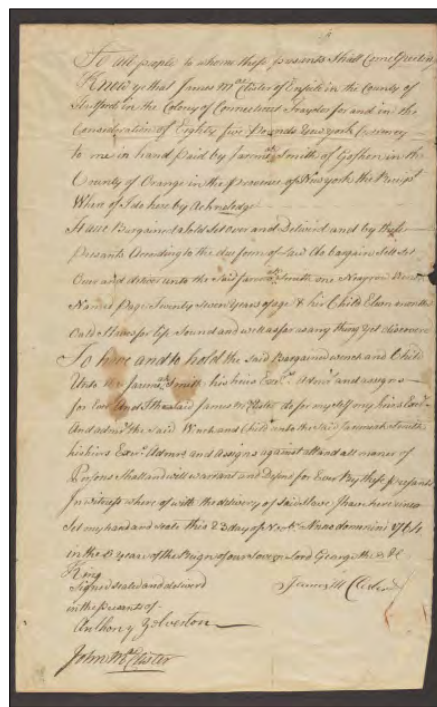 To all people to whome these presents Shall Come Greeting
Know ye that James McClister of Enfield in the County of
Hartford in the Colony of Connecticut Traydor for and in the
Consideration of Eighty five Pounds New york Currency
to me in hand Paid by Smith of Goshen in the
County of Orange in the Province of New york the Receipt
Where of I do here by Acknoledge
Have Bargained Sold Set over and Deliverd and by these
Presants According to the due form of Law do bargain Sele Set
Over and deliver unto the Said Smith one Negrow
Named Page Twenty Seven Years of age & hir Child Elven months
Oald Slaves for life Sound and well as far as any thing yet discovers
To have and to hold the Said Bargained wench and Child
Unto the Smith his hirs and assigns
for Ever And I the Said James McClister do for my self my hirs
And the Said Winch and Child unto the Said Smith
his hirs and Assigns against all and all maner of
Persons Shall and will warrant and Defend for Ever By these presants
In witness where of with the delivery of Said Slave I have here unto
Set my hand and seale this 23 day of annodomini 1764
in the year of the Reign of our Lord George the
King
Signed seated and delivered
in the Presants of
James McClister
Anthony Yelverton
John McClister